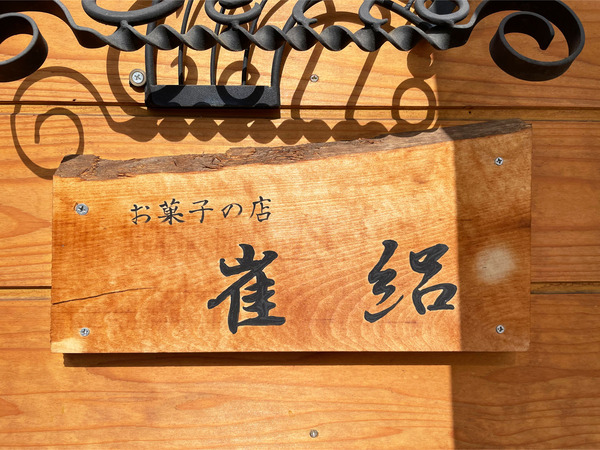 お菓子の店
崔絽